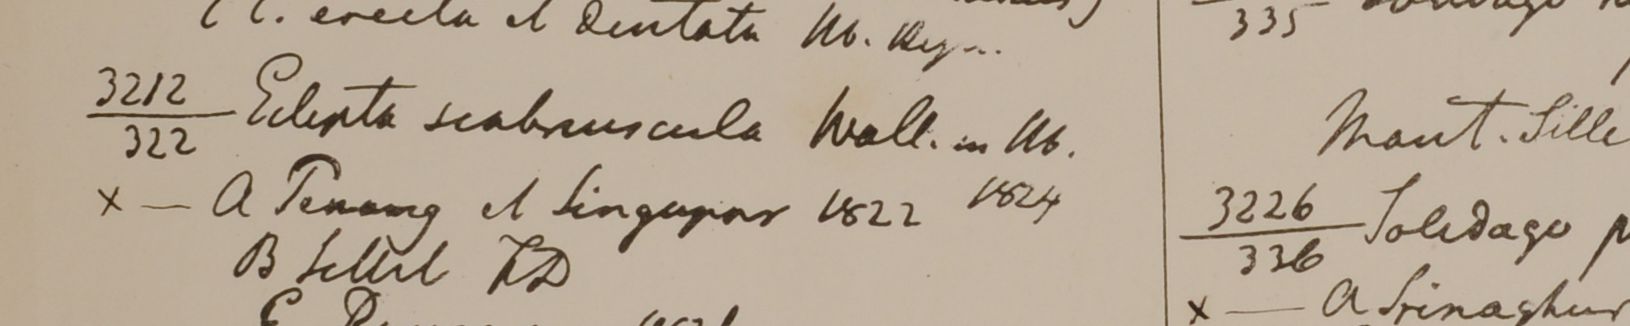 erecta et dentata Hb.
3212
322
Eclipta scabriuscula Wall. in Hb.
x — A Penang et Singapur 1822 1824
B Sillet FD
E
335
Solidago
Mont. Sille
3226
336
Solidago p
x — A Srinaghur